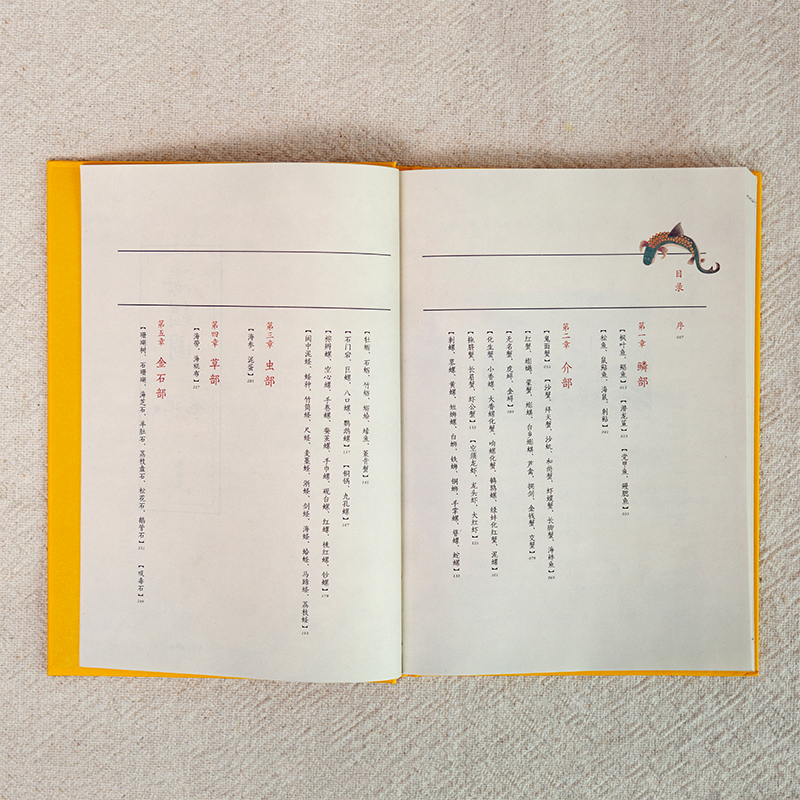 目录
序
007
第一章 鳞部
【枫叶鱼、鳐鱼】013 【潜龙鲨】023 【党甲鱼、鳗腮鱼】033
【松鱼、鼠鲇鱼、海鼠、刺鲇】041
第二章 介部
【鬼面蟹】053 【沙蟹、拜天蟹、沙虮、和尚蟹、虾蟆蟹、长脚蟹、海蟳鱼】065
【红蟹、蝤蛑、蒙蟹、蝤蛑、台乡蝤蛑、芦禽、拥剑、金钱蟹、交蟹】079
【无名蟹、虎蟳、金蟳】
【化生蟹、小香螺、大香螺化蟹、响螺化蟹、鹌鹑螺、绿蚌化红蟹、泥螺】101
【披脐蟹、长眉蟹、虾公蟹】 【空须龙虾、龙头虾、大红虾】
【刺螺、苏螺、黄螺、短蛳螺、白蛳、铁蛳、铜蛳、手掌螺、簪螺、蛇螺】
【牡蛎、石蛎、竹蛎、蛎蛤、蠔鱼、篆背蟹】
【石门宕、巨螺、八口螺、鹦鹉螺】 【铜锅、九孔螺】
【棕辫螺、空心螺、手卷螺、葵菜螺、手巾螺、砚台螺、红螺、桃红螺、钞螺】
【闽中泥蛏、蛏种、竹筒蛏、尺蛏、麦藁蛏、浙蛏、剑蛏、海蛏、蛤蛏、马蹄蛏、荔枝蛏】
第三章 虫部
【海参、泥蛋】
第四章 草部
【海带、海裩布】
第五章 金石部
【珊瑚树、石珊瑚、海芝石、羊肚石、荔枝盘石、松花石、鹅管石】 【吸毒石】